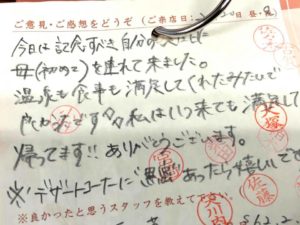 ご意見・ご感想をどうぞ（ご来店日：
今日は記念すべき自分の
母（初めて）を連れて来ました。
温泉も食事も満足してくれたみたいで
良かったです♪♪私はいつ来ても満足して
帰ってます!!ありがとうございます。
※デザートコーナーに あったら嬉しいです
※良かったと思うスタッフを教えて下さい
大塚
佐藤